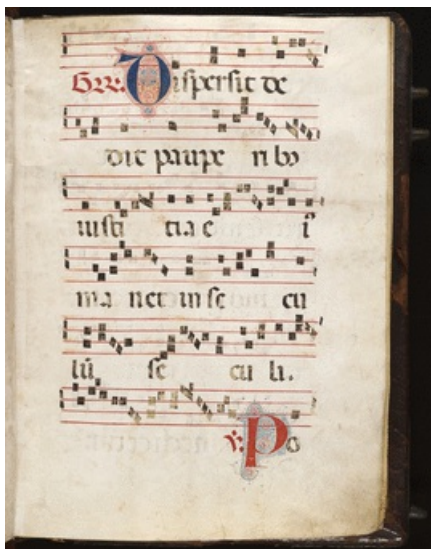 Grr. Dispersit de
dit paupe ribꝰ
iusti tia e i̾
ma net in se cu
lū se cu li.
℣. Po